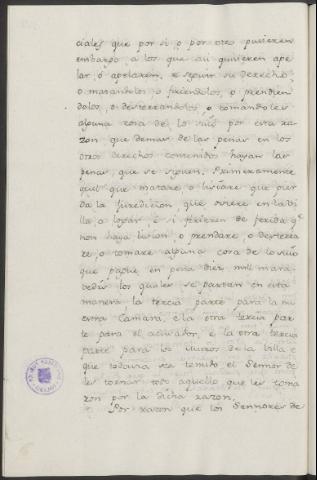 ciales que por si o por otro pusieren
embargo a los que asi quisieren ape
lar, ó apelaren, e seguir su derecho,
o matandolos o firiendolos, o prendien
dolos, o desterrandolos, o tomandoles
alguna cosa de lo suio por esta ra
zon que demas de las penas en los
otros derechos contenidas hayan las
penas, que se siguen. Primeramente
quel que matare o lisiare que pier
da la Juredicion, que oviere en la Vi
lla, o logar, e si firieren de ferida qe
non haya lision, o prendare, o desterra
re, o tomare alguna cosa de lo suio
que pague en pena diez mill mara
vedis los quales se partan en esta
manera la tercia parte para la nu
estra Camara, e la otra tercia par
te para el acusador, e la otra tercia
parte para los muros de la villa e
que todavia sea tenudo el Sennor de
les tornar todo aquello que les toma
ron por la dicha razon.
Por razon que los Sennores de